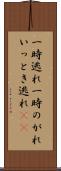 一時逃れ一時のがれ
いっとき逃れ((